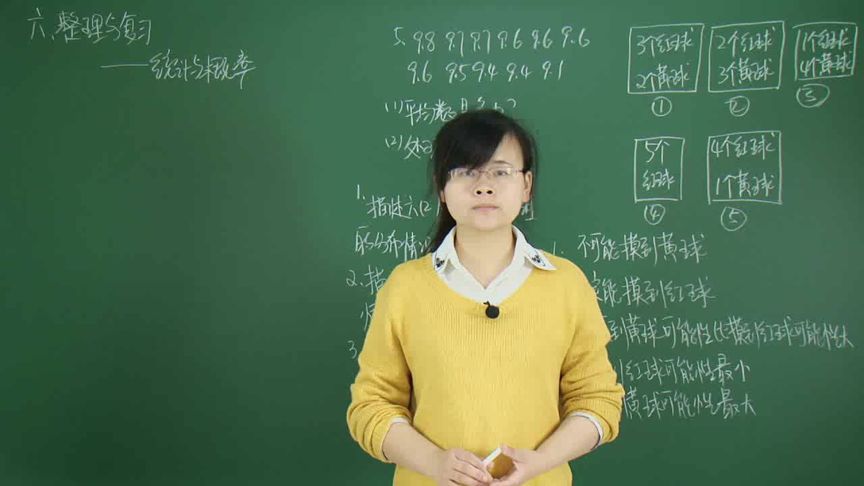 六、整理与复习
——统计与概率
5、9.8 9.7 9.7 9.6 9.6 9.6
9.6 9.5 9.4 9.4 9.1
(1) 平均数
(2)
1、描述六
的分布情
2、描
3
3个红球
2个黄球
①
2个红球
3个黄球
②
1个红球
4个黄球
③
5个
红球
④
4个红球
1个黄球
⑤
1. 不可能摸到黄球
定能摸到红球
到黄球可能性比摸到红球可能性大
红球可能性最小
黄球可能性最大